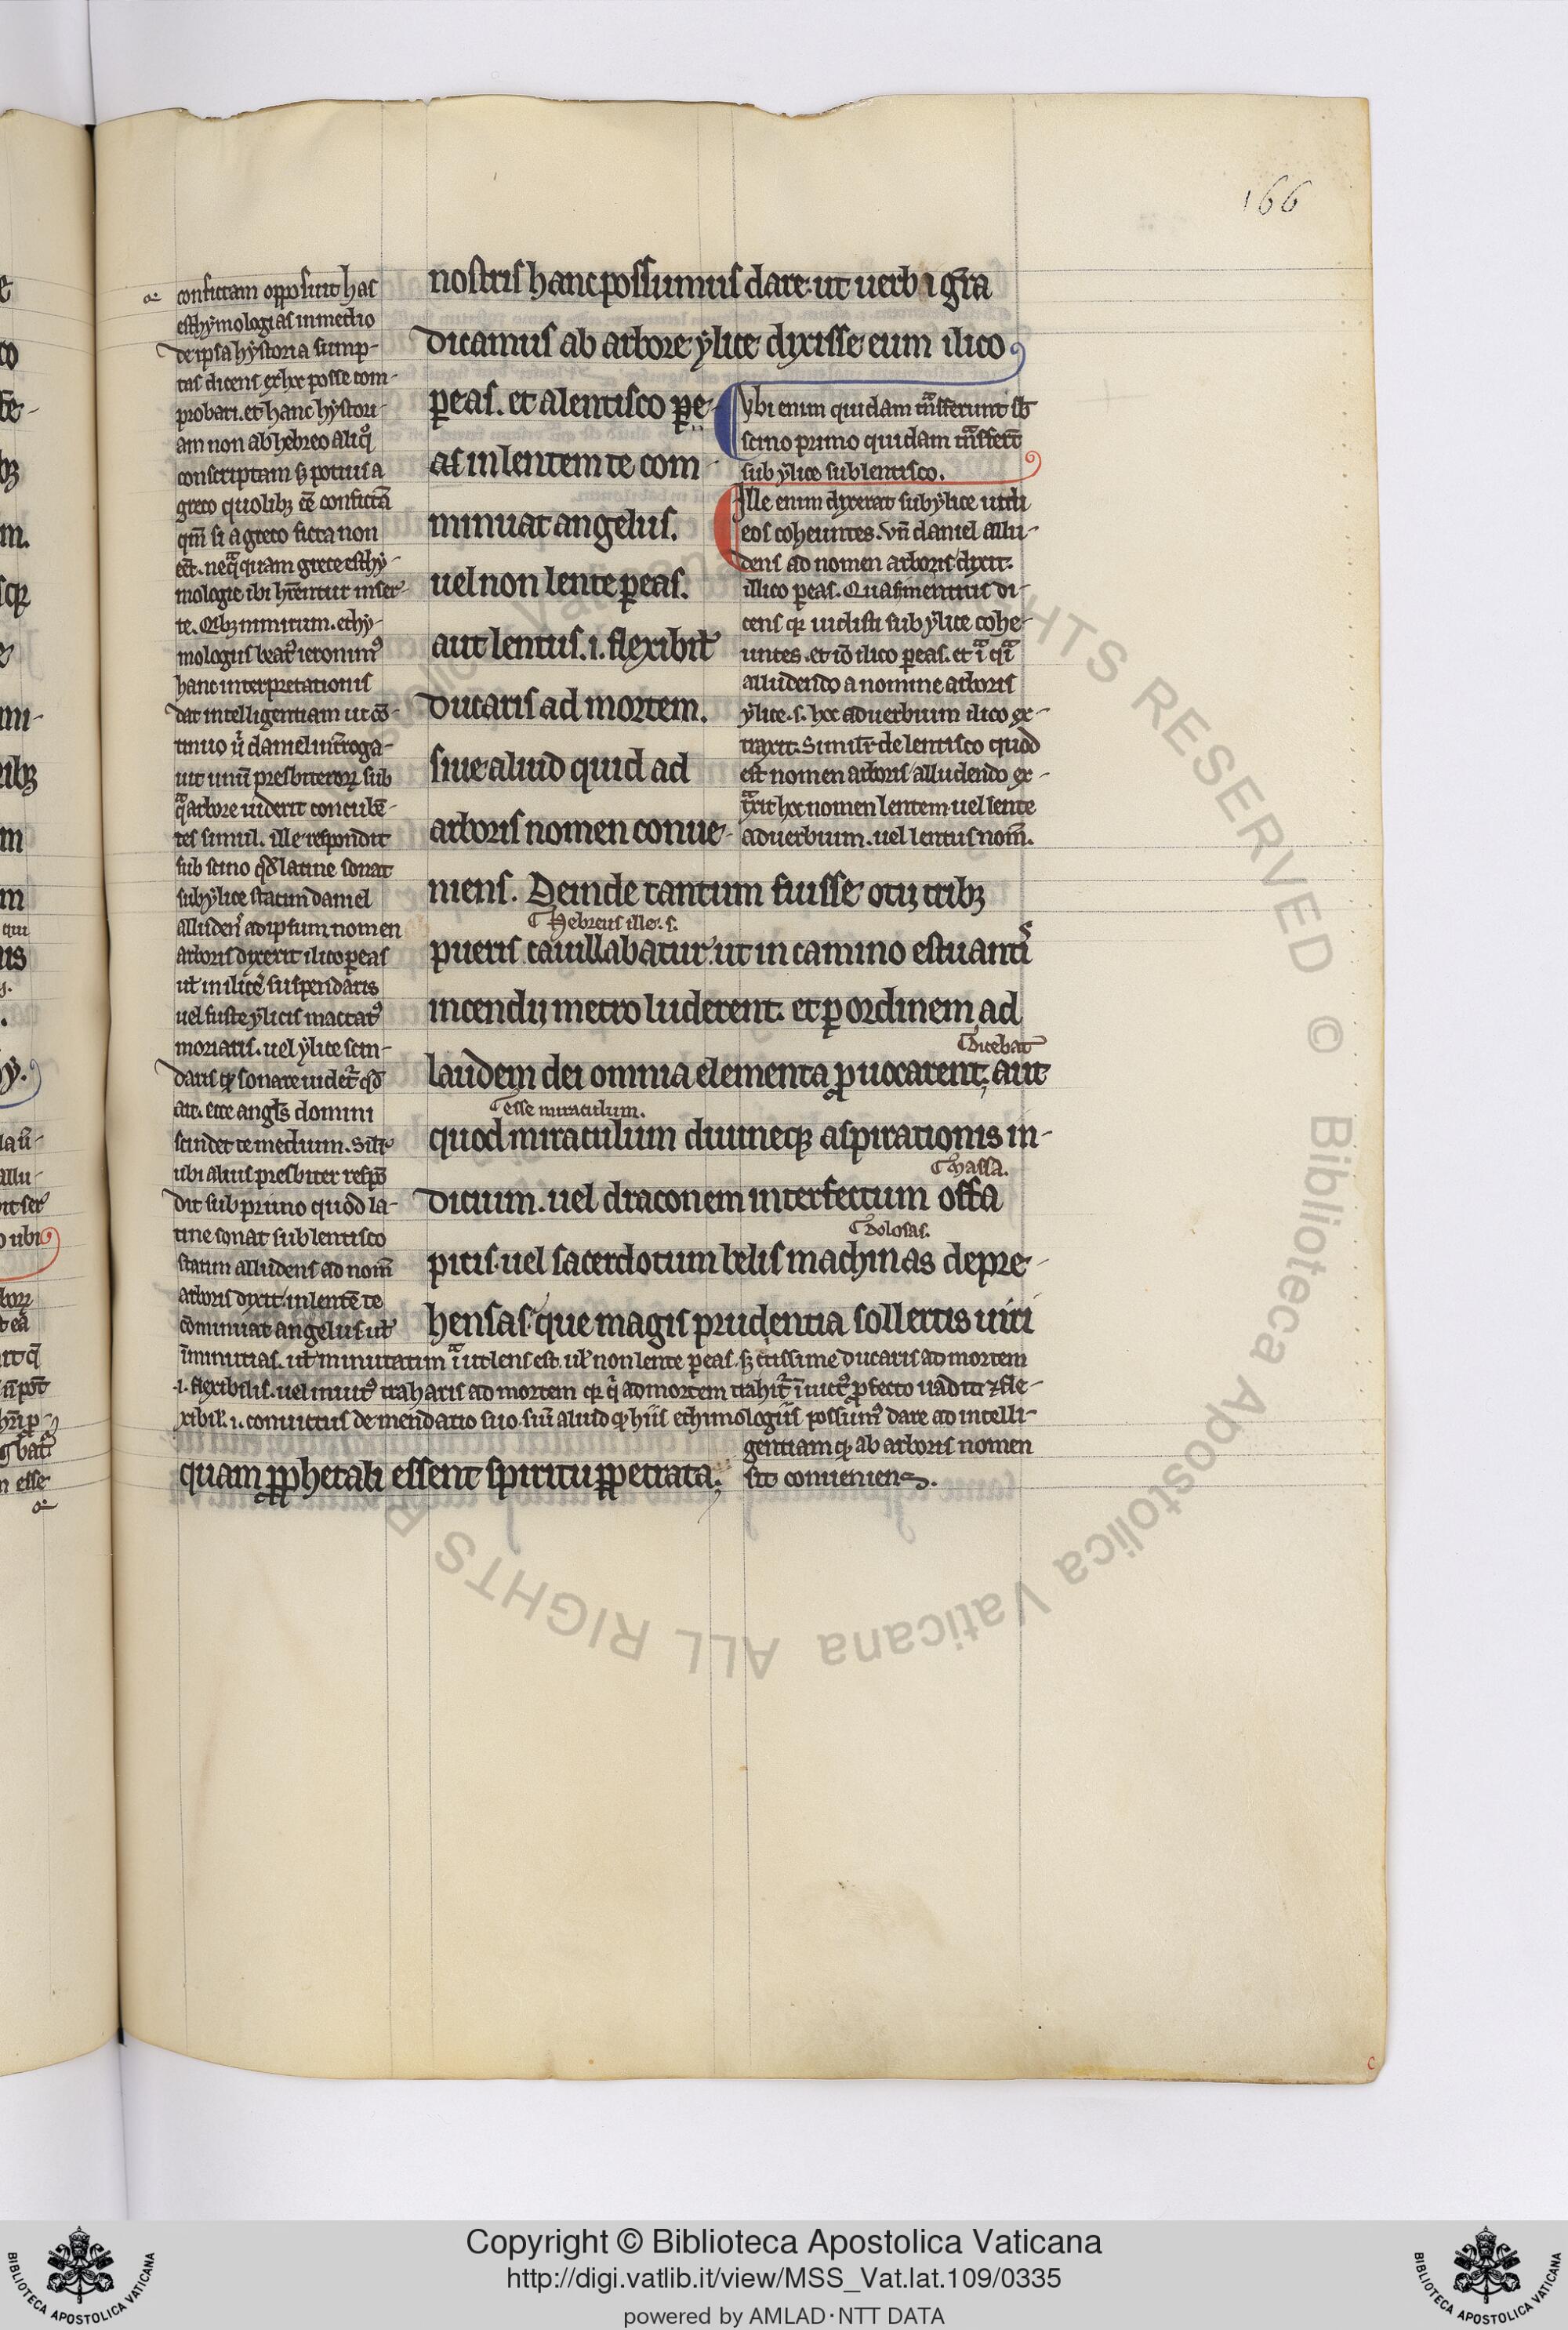 166
nostris hanc possumus dare. ut uerbi gr̄a
dicamus ab arbore ẏlice dixisse eum ilico
ꝑeas. et a lentisco ꝑe-
as in lentem te com-
minuat angelus.
uel non lente ꝑeas.
aut lentus. i. flexibil'
ducaris ad mortem.
siue aliud quid ad
arboris nomen conue-
niens. Deinde tantum fuisse otij tribꝫ
Hebreus ille. s.
pueris cauillabatur. ut in camino estuantis
incendij metro luderent. et ꝑ ordinem ad
Dicebat
laudem dei omnia elementa ꝓuocarent; aut
esse miraculum.
quod miraculum diuineqꝫ aspirationis in-
Massa.
dicium. uel draconem interfectum offa
Dolosas.
picis. uel sacerdotum belis machinas depre-
hensas. que magis prudentia sollertis uiri
quam ꝓphetali essent spiritu ꝑpetrata;
confictam opposuit has
esthẏmologias in medio
de ipsa hẏstoria sump-
tas dicens ex hoc posse com-
probari. et hanc hẏstori-
am non ab hebreo aliq°
conscriptam sꝫ potius a
greco quolibꝫ eē confictā
qm̄ si a greco ficta non
eēt. neqͣquam grece esthẏ-
mologie ibi hr̄entur inser-
te. Qibꝫ nimirum. ethẏ-
mologiis beatꝰ ieronimꝰ
hanc interpretationis
dat intelligentiam ut cō-
tinuo ū daniel int̄roga-
uit unū presbiterorꝝ sub
qͣ arbore uiderit concubē-
tes simul. ille respondit
sub scino qd̄ latine sonat
sub ẏlice statim daniel
alludens ad ipsum nomen
arboris dixerit ilico ꝑeas
ut̄ in ilice suspendaris
uel fuste ẏlicis mactatꝰ
moriaris. uel ẏlice scin-
daris qꝫ sonare uidet̄ qd̄
ait. ecce angl̄s domini
scindet te medium. Silr̄
ubi alius presbiter respō
dit sub prino quod la-
tine sonat sub lentisco
statim alludens ad nom̄
arboris dixit. in lentē te
cōminuat angelus ut̄
īminutias. ut̄ minutatim iͣ ut lens est. ul̄ non lente ꝑeas. sꝫ citissime ducaris ad mortem
.i. flexibilis. uel inuitꝰ traharis ad mortem qꝫ q̇ ad mortem trahit̄ īuictꝰ ꝓfecto uadit ⁊ fle-
xibil'. i. conuictus de mendatio suo. siū aliud qꝫ hiis ethimologiis possumꝰ dare ad intelli-
gentiam qꝫ ab arboris nomen
sit conueniens.
Vbi enim quidam tn̄sferunt sb̄
scino primo quidam tn̄sferēt
sub ẏlice sub lentisco.
Ille enim dixerat sub ẏlice uidi
eos coheuntes. Vn̄ daniel allu-
dens ad nomen arboris dixit.
illico ꝑeas. Quasi mentitus di-
cens qꝫ uidisti sub ẏlice cohe-
untes. et iō ilico ꝑeas. et iͣ qͥ
alludendo a nomine arboris
ẏlice. s. hoc aduerbium ilico ex-
traxit. Similr̄ de lentisco quod
est nomen arboris alludendo ex-
tͣxit hoc nomen lentem uel lente
aduerbium. uel lentus nom̄.
Copyright © Biblioteca Apostolica Vaticana
http://digi.vatlib.it/view/MSS_Vat.lat.109/0335
powered by AMLAD·NTT DATA